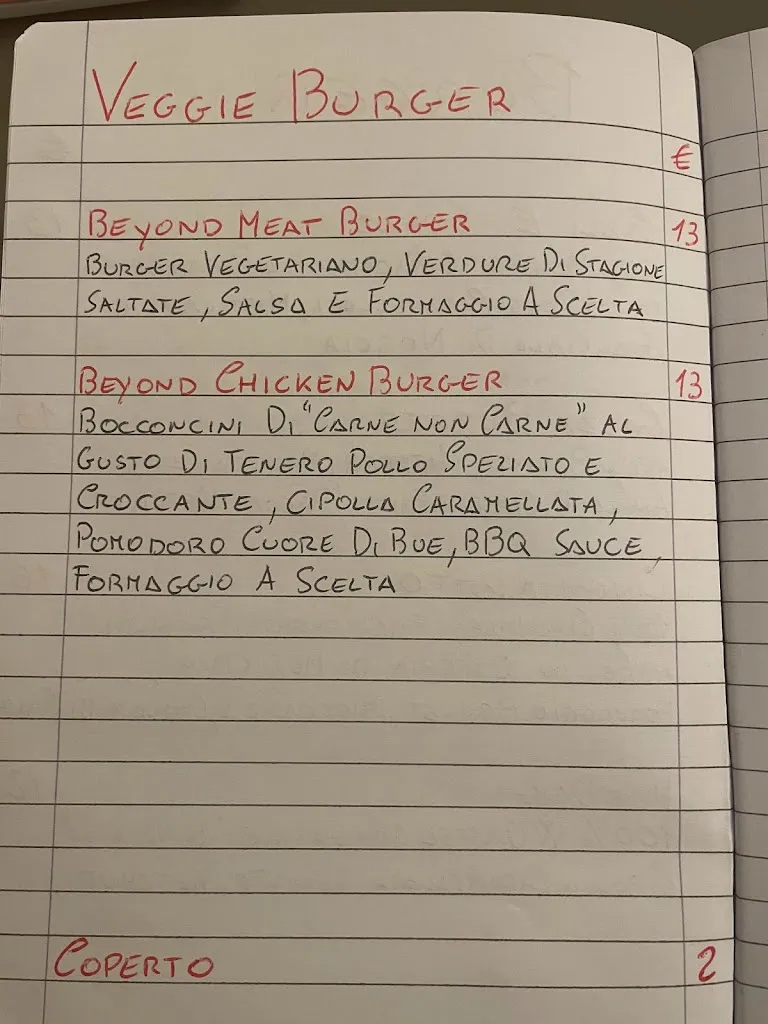 VEGGIE BURGER
€
BEYOND MEAT BURGER 13
BURGER VEGETARIANO, VERDURE DI STAGIONE
SALTATE, SALSA E FORMAGGIO A SCELTA
BEYOND CHICKEN BURGER 13
BOCCONCINI DI "CARNE NON CARNE" AL
GUSTO DI TENERO POLLO SPEZIATO E
CROCCANTE, CIPOLLA CARAMELLATA,
POMODORO CUORE DI BUE, BBQ SAUCE,
FORMAGGIO A SCELTA
COPERTO 2